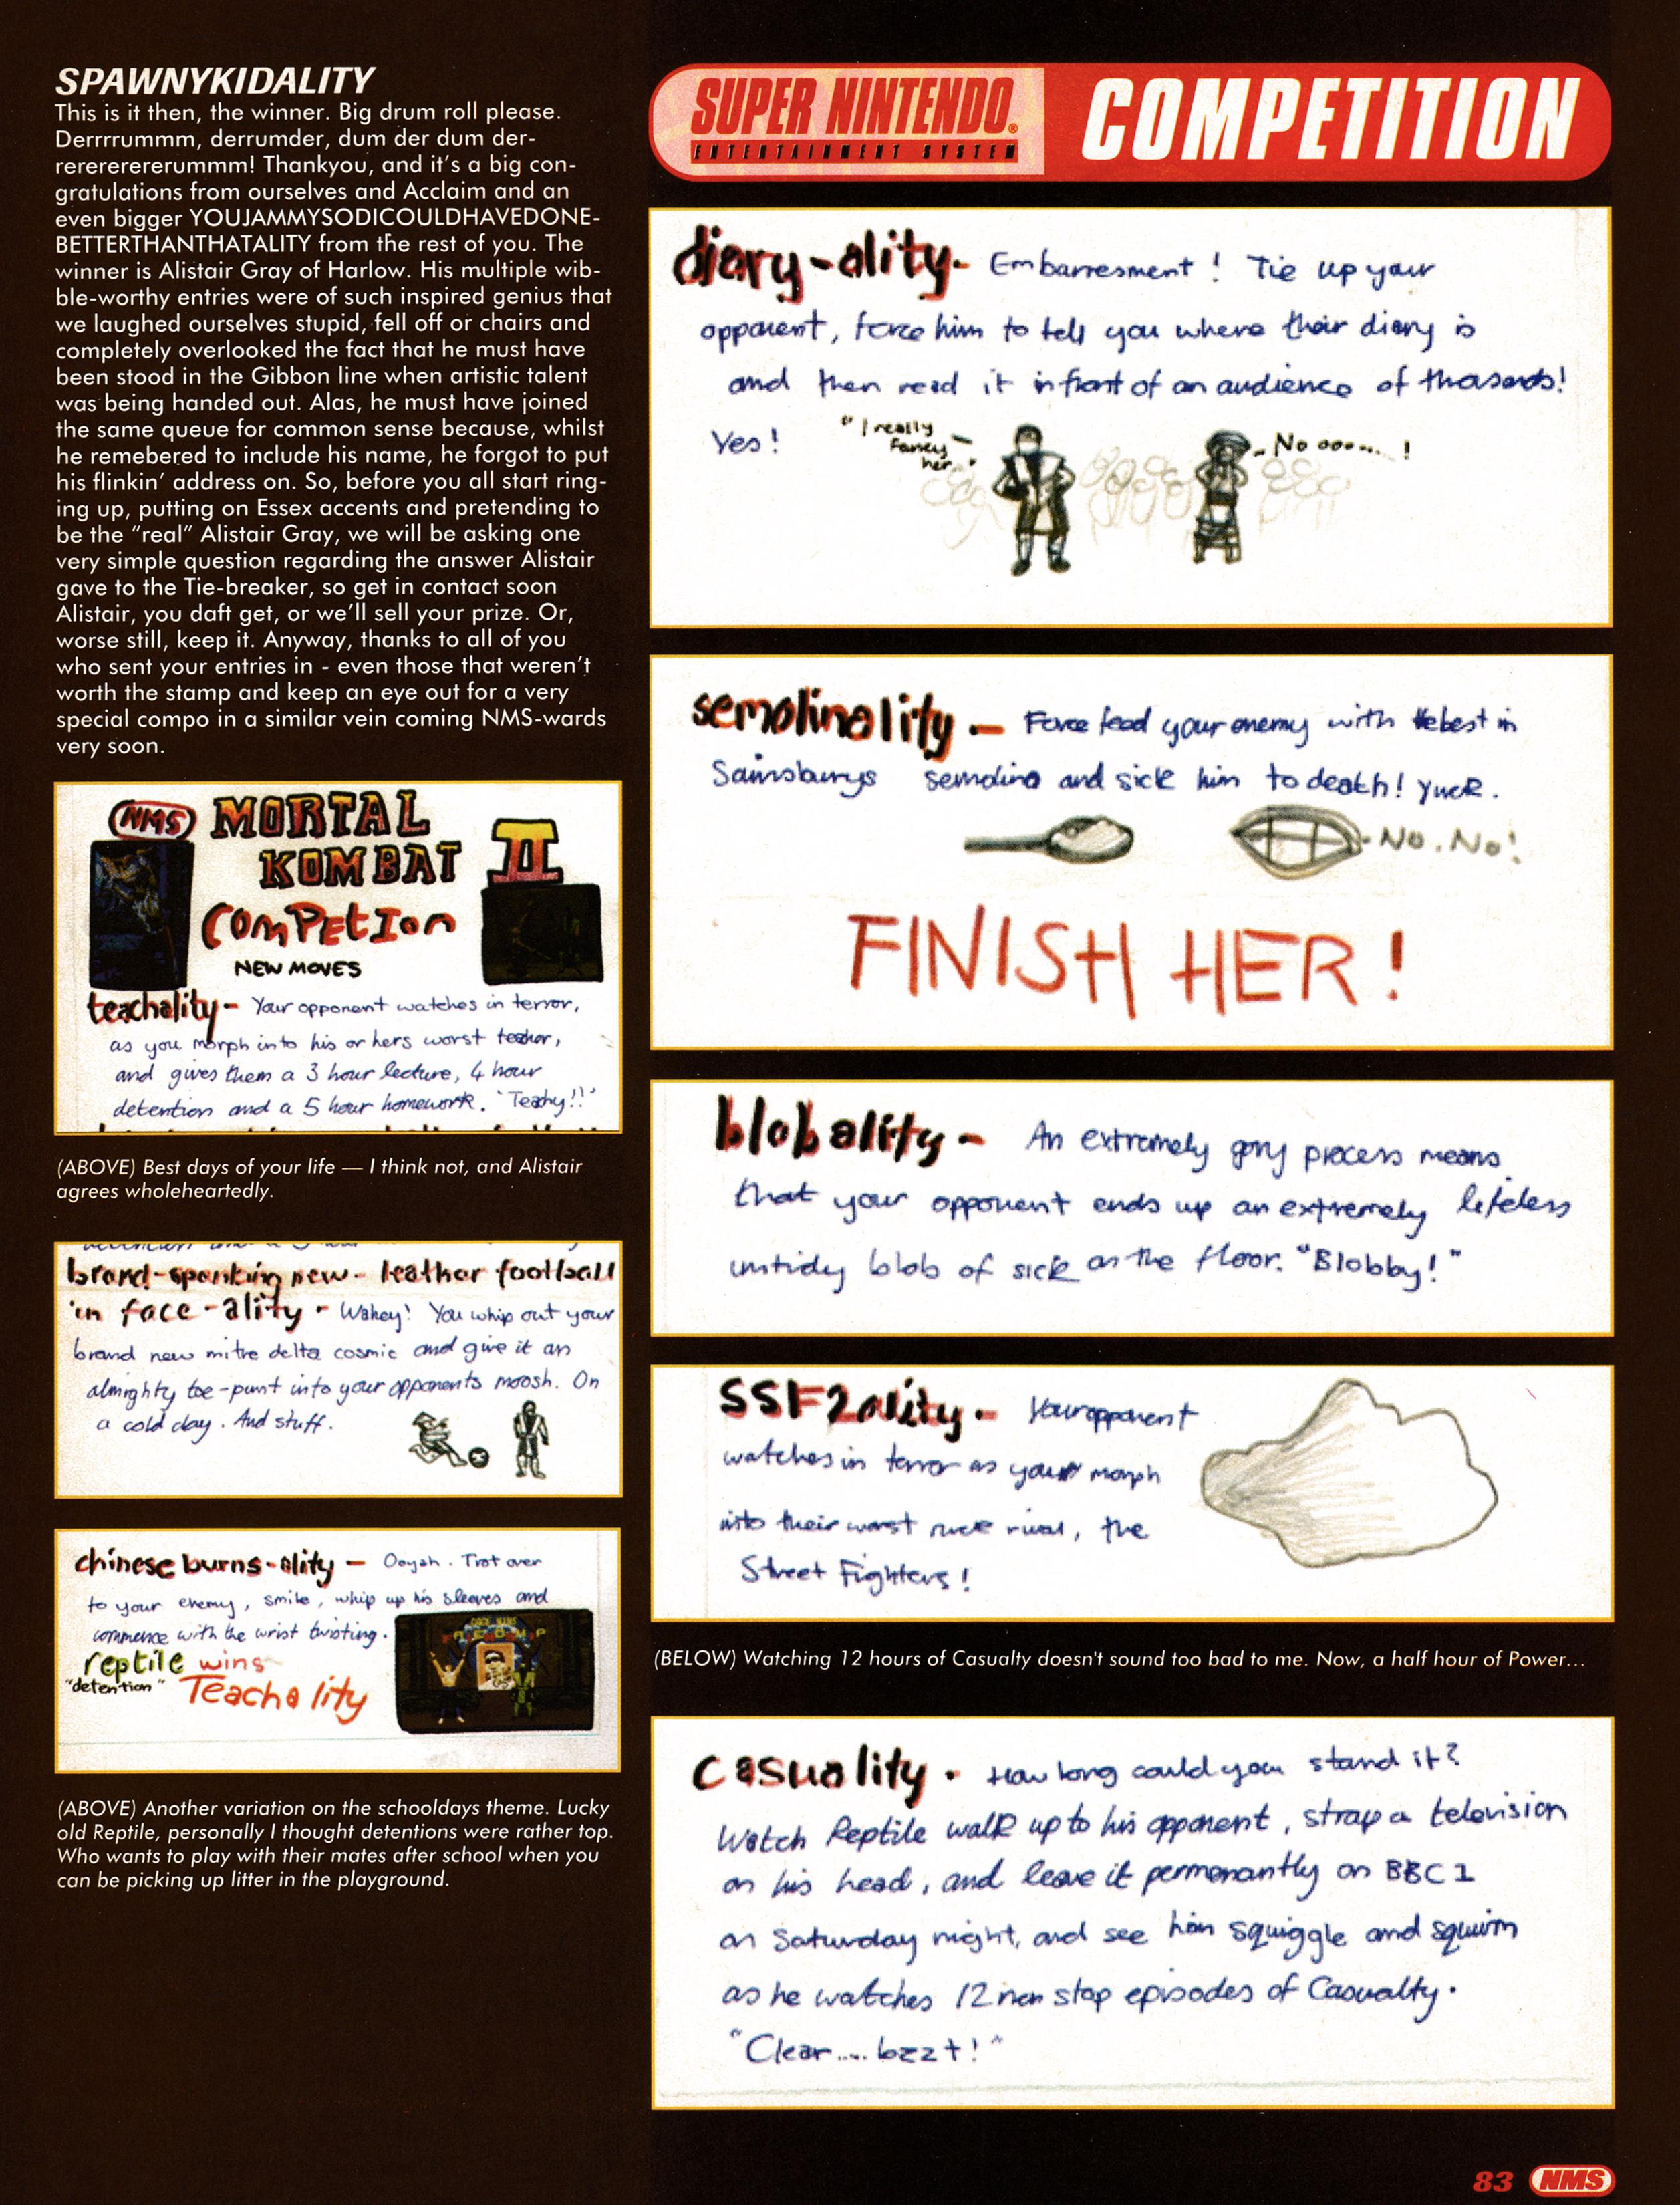 SPAWNYKIDALITY
This is it then, the winner. Big drum roll please.
Derrrrummm, derrumder, dum der dum der-
rerererererummm! Thankyou, and it's a big con-
gratulations from ourselves and Acclaim and an
even bigger YOUJAMMYSODICOULDHAVEDONE-
BETTERTHANTHATALITY from the rest of you. The
winner is Alistair Gray of Harlow. His multiple wib-
ble-worthy entries were of such inspired genius that
we laughed ourselves stupid, fell off or chairs and
completely overlooked the fact that he must have
been stood in the Gibbon line when artistic talent
was being handed out. Alas, he must have joined
the same queue for common sense because, whilst
he remebered to include his name, he forgot to put
his flinkin' address on. So, before you all start ring-
ing up, putting on Essex accents and pretending to
be the "real" Alistair Gray, we will be asking one
very simple question regarding the answer Alistair
gave to the Tie-breaker, so get in contact soon
Alistair, you daft get, or we'll sell your prize. Or,
worse still, keep it. Anyway, thanks to all of you
who sent your entries in - even those that weren't
worth the stamp and keep an eye out for a very
special compo in a similar vein coming NMS-wards
very soon.
NMS MORTAL
KOMBAT II
COMPETIon
NEW MOVES
teachality - Your opponent watches in terror,
as you morph into his or hers worst teacher,
and gives them a 3 hour lecture, 4 hour
detention and a 5 hour homework. 'Teachy!!'
(ABOVE) Best days of your life — I think not, and Alistair
agrees wholeheartedly.
brand-spanking new- leather football
in face-ality - Wahey! You whip out your
brand new mitre delta cosmic and give it an
almighty toe-punt into your opponents moosh. On
a cold day. And stuff.
chinese burns-ality - Ooyah. Trot over
to your enemy, smile, whip up his sleeves and
commence with the wrist twisting.
reptile wins
"detention" Teachality
(ABOVE) Another variation on the schooldays theme. Lucky
old Reptile, personally I thought detentions were rather top.
Who wants to play with their mates after school when you
can be picking up litter in the playground.
SUPER NINTENDO®
ENTERTAINMENT SYSTEM
COMPETITION
diary-ality- Embarresment! Tie up your
opponent, force him to tell you where their diary is
and then read it in front of an audience of thasands!
Yes! "I really
fancy
her.."
- No ooo.... !
semolinality - Force feed your enemy with the best in
Sainsburys semolina and sick him to death! yuck.
- No. No!
FINISH HER!
blobality - An extremely gory process means
that your opponent ends up an extremely lifeless
untidy blob of sick on the floor. "Blobby!"
SSF2ality - Your opponent
watches in terror as your morph
into their worst rival, the
Street Fighters!
(BELOW) Watching 12 hours of Casualty doesn't sound too bad to me. Now, a half hour of Power...
casuality . How long could you stand it?
Watch Reptile walk up to his opponent, strap a television
on his head, and leave it permanantly on BBC 1
on Saturday night, and see him squiggle and squirm
as he watches 12 non stop episodes of Casualty.
"Clear.... bzzt!"
83 NMS